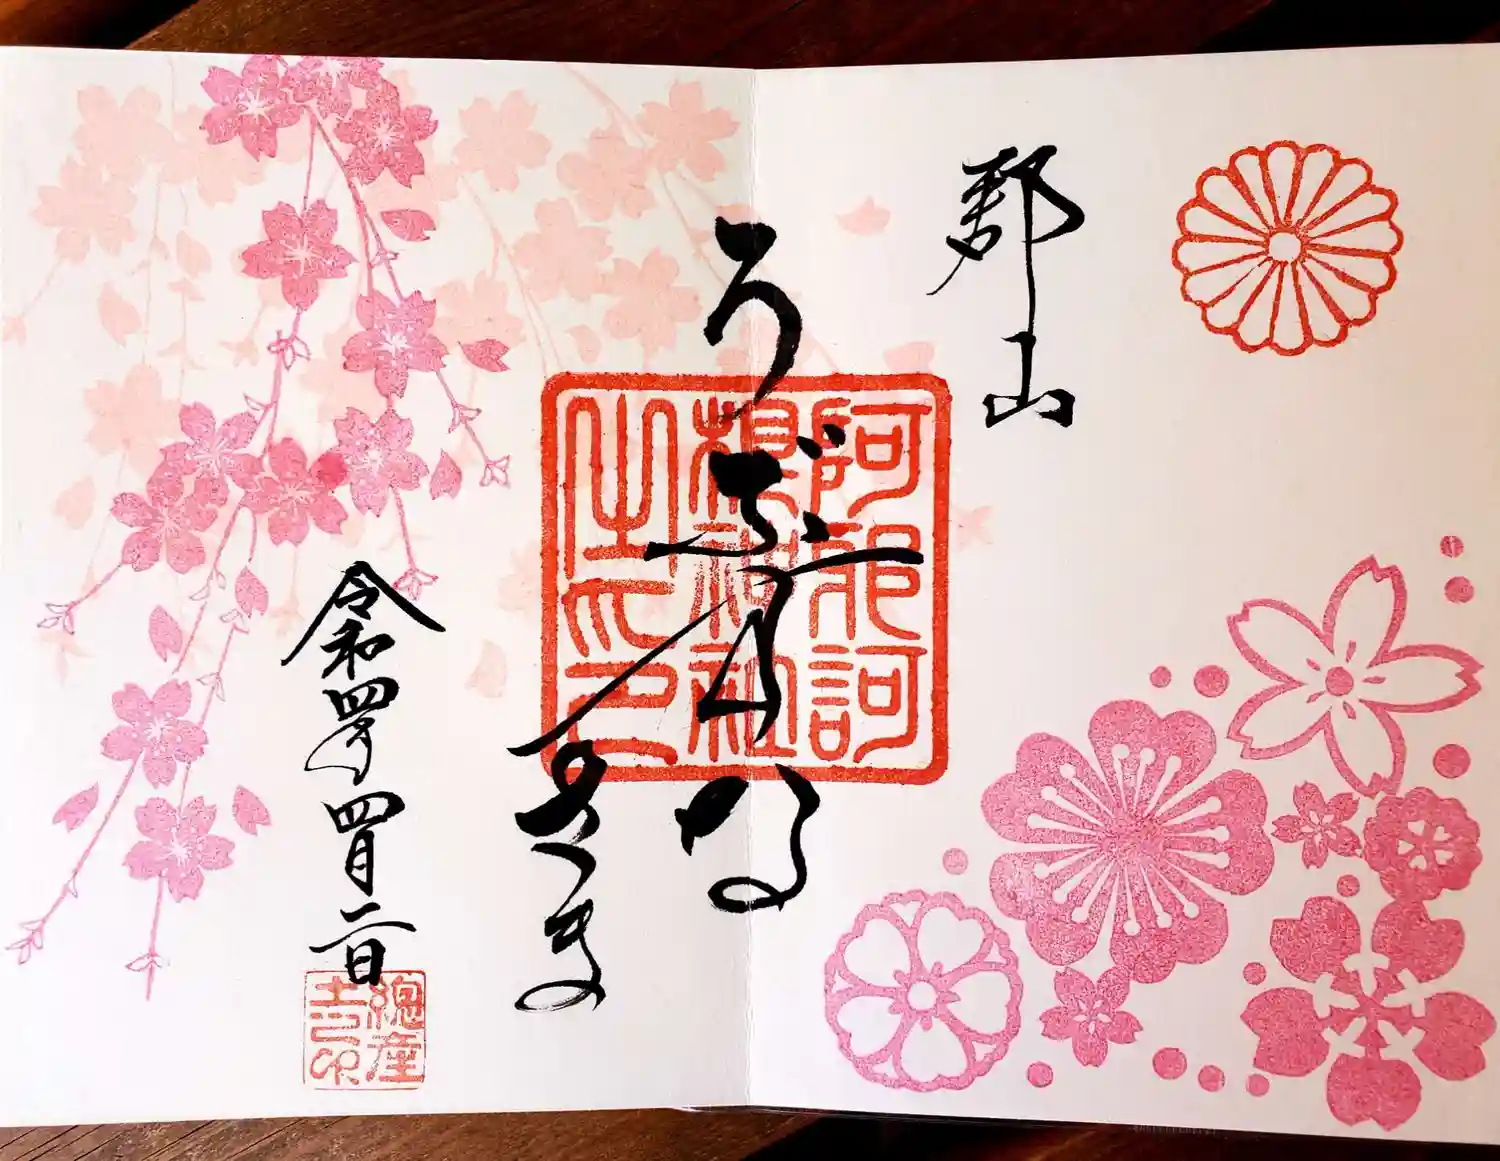 郡山
うぶすな
さま
阿邪訶
根神社
之印
令和四年四月二日
總産
土印